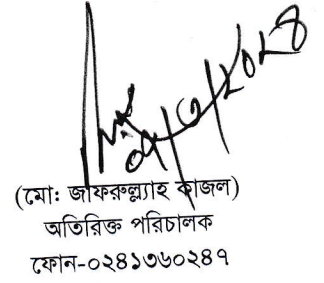 (মো: জাফরুল্ল্যাহ কাজল)
অতিরিক্ত পরিচালক
ফোন-০২৪১৩৬০২৪৭